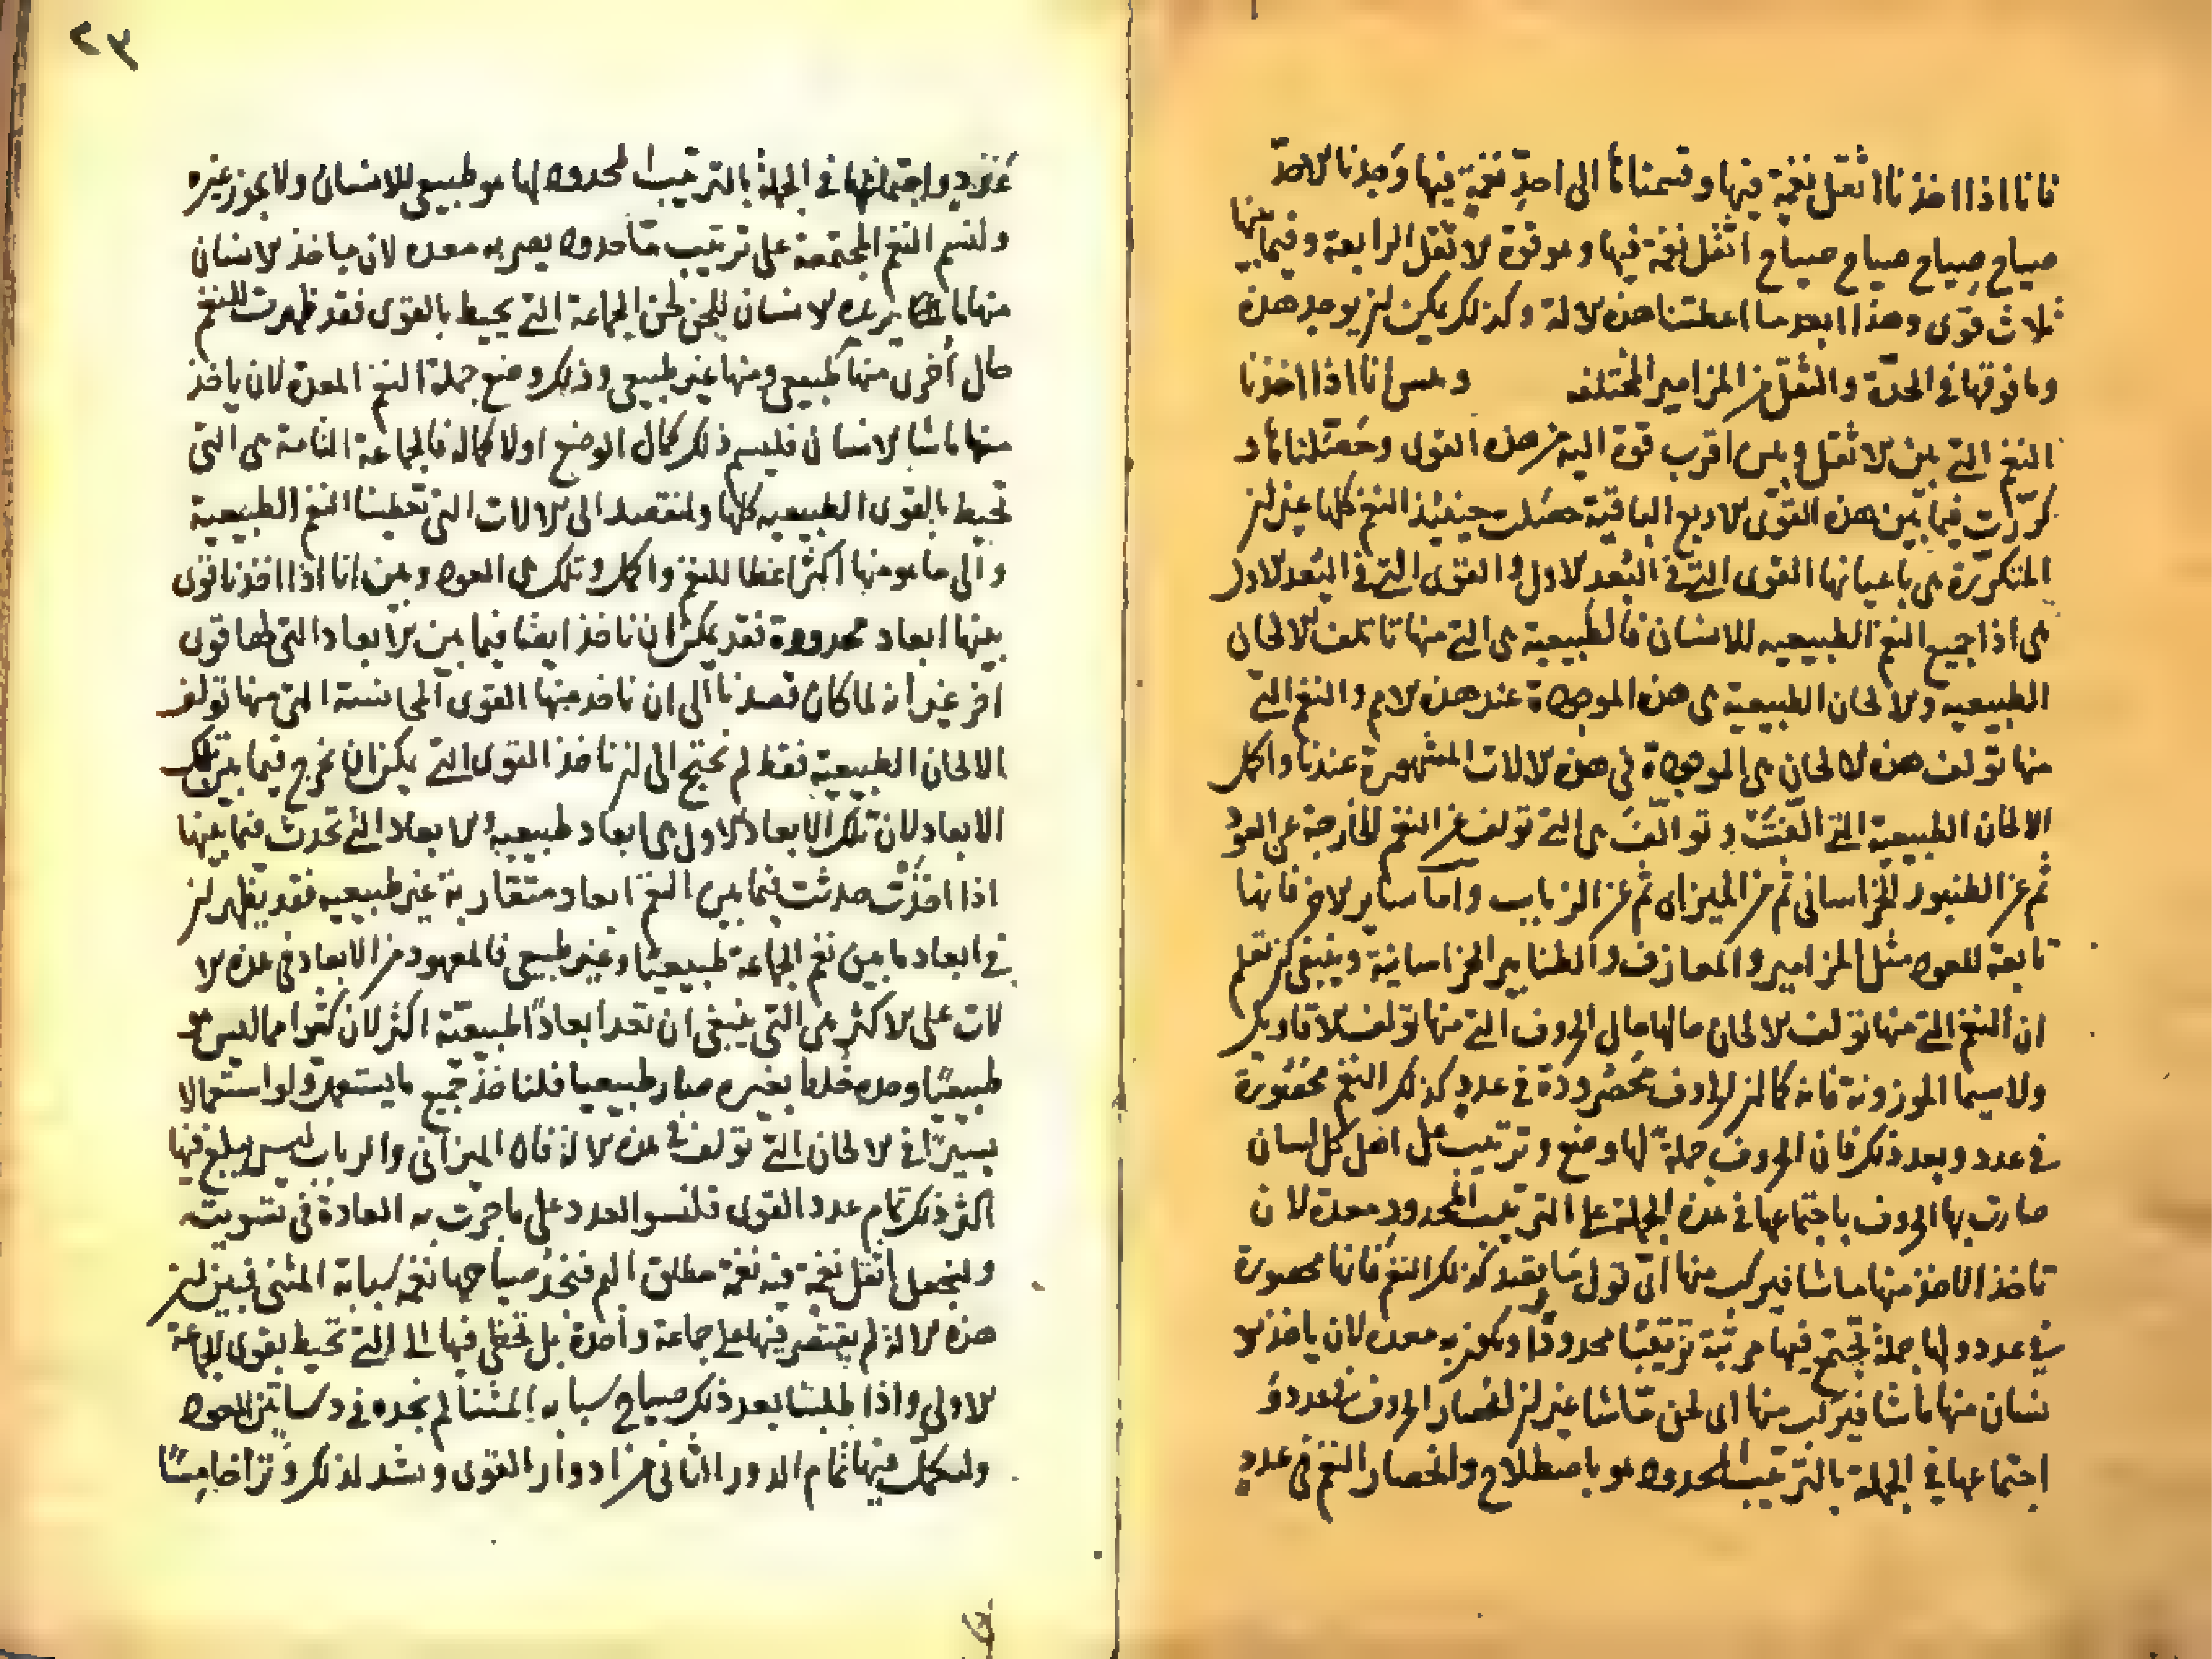 فانا اذا اخذنا اثقل نغمة فيها وقسمناها الى احدّ نغمة فيها وجدنا الاحدّ
صياح صياح صياح صياح اثقل نغمة فيها وهو قوة الاثقل الرابعة وفيما بينها
ثلاث قوى وهذا ابعد ما اعطتنا هذه الالة وكذلك يمكن ان يوجد هذه
وما فوقها في الحدّة والثقل من المزامير المختلفه انا اذا اخذنا
النغم التي بين الاثقل وبين اقرب قوة اليه من هذه القوى
كررت فيما بين هذه القوى الاربع الباقية حصلت حينئذ النغم كلها غير ان
المتكررة هي باعيانها القوى التي في البعد الاول والقوى التي في البعد الاول
هي اذا جميع النغم الطبيعيه للانسان فالطبيعية هي التي منها تاتلف الالحان
الطبيعيه والالحان الطبيعية هي هذه الموجودة عند هذه الامم والنغم التي
منها تولف هذه الالحان هي الموجودة في هذه الالات المشهورة عندنا واكمل
الالحان الطبيعية التي الفت وتوالف هي التي تولف عن النغم الخارجة عن العود
ثم عن الطنبور الخراساني ثم من الميزان ثم عن الرباب واما ساير الاخر فانها
تابعة للعود مثل المزامير والمعازف والطنابير الخراسانية وينبغي ان تعلم
ان النغم التي منها تولف الالحان حالها حال الحروف التي منها تولف الاقاويل
ولا سيما الموزونة فانه كما ان الحروف محصورة في عدد كذلك النغم محصورة
في عدد وبعد ذلك فان الحروف جملة لها وضع وترتيب عند اهل كل لسان
صارت بها الحروف باجتماعها في هذه الجملة على الترتيب المحدود معدة لان
تاخذ الاخذ منها ما شا فيركب منها اى قول ما يقصد كذلك النغم فانها محصورة
في عدد ولها جملة تجتمع فيها مرتبة ترتيبا محدودا وتكون به معده لان ياخذ الا
نسان منها ما شا فيركب منها اى لحن ما شا غير ان انحصار الحروف في عدد و
اجتماعها في الجملة بالترتيب المحدود هو باصطلاح وانحصار النغم في عدد
٢٣
واجتماعها في الجملة بالترتيب المحدود لها هو طبيعي للانسان ولا يجوز غيره
ولنسم النغم المجتمعة على ترتيب ما محدود يصير به معده لان ياخذ الانسان
منها ما يريده الانسان للحن لحن الجماعة التي يحيط بالقوى فقد ظهرت للنغم
حال اخرى منها طبيعي ومنها غير طبيعي وذلك وضع جملة النغم المعدة لان ياخذ
منها ما شا الانسان فليسم ذلك كمال الوضع اولا كماله فالجماعة التامة هي التي
تحيط بالقوى الطبيعيه كلها ولنقصد الى الالات التي تعطينا النغم الطبيعية
والى ما هو منها اكثر اعطا للنغم واكمل وتلك هي العود وبين انا اذا اخذنا قوى
بينها ابعاد محدودة فقد يمكن ان ناخذ ايضا فيما بين الابعاد التي لها قوى
اخر غير انه لما كان قصدنا الى ان ناخذ منها القوى المتجانسة التي منها تولف
الالحان الطبيعية فقط لم نحتج الى ان ناخذ القوى التي يمكن ان تخرج فيما بين تلك
الابعاد لان تلك الابعاد الاول هي ابعاد طبيعية والابعاد التي تحدث فيما بينها
اذا اخذت حدثت فيما بين النغم ابعاد متقاربة غير طبيعيه فقد يظهر ان
في ابعاد ما بين نغم الجماعة طبيعيا وغير طبيعي فالمعهود من الابعاد في هذه الا
لات على الاكثر هي التي ينبغي ان تعد ابعادا طبيعية اكثر لان كثيرا مما ليس هو
طبيعيا وحده خلط بغيره صار طبيعيا فلناخذ جميع ما يستعمل ولو استعمالا
يسيرا في الالحان التي تولف في هذه الالة فان الميزاني والرباب ليس يبلغ فيها
اكثر ذلك تمام عدد القوى فلنسو العدد على ما جرت به العادة في تسويته
ولنجعل اثقل نغمة فيه نغمة مطلق البم فنجد صياحها نغمة سبابة المثنى فبين ان
هذه الالة لم يقتصر فيها على جماعة واحدة بل تخطى فيها الى التي تحيط بقوى الجماعة
الاولى واذا طلبنا بعد ذلك صياح سبابه المثنا لم نجده في دساتين العود
وليكمل فيها تمام الدور الثاني من ادوار القوى ونشد لذلك وترا خامسا